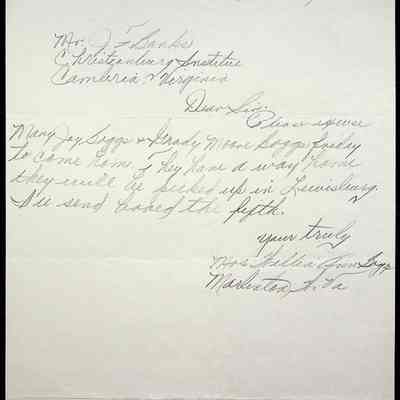 Mr. J F Banks
Christianburg Institue
Cambria Virginia
Dear Sir:
Please excuse
Mary Joy Boggs & Grady Moore Boggs friday
to come home. They have a way home
they will be picked up in Lewisburg.
I'll send board the fifth.
your truly
Mrs Ann Boggs
Marlinton, W. Va